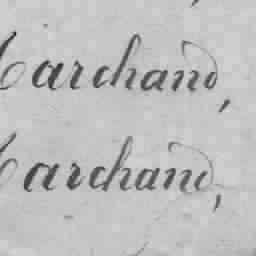 Marchand,
Marchand,